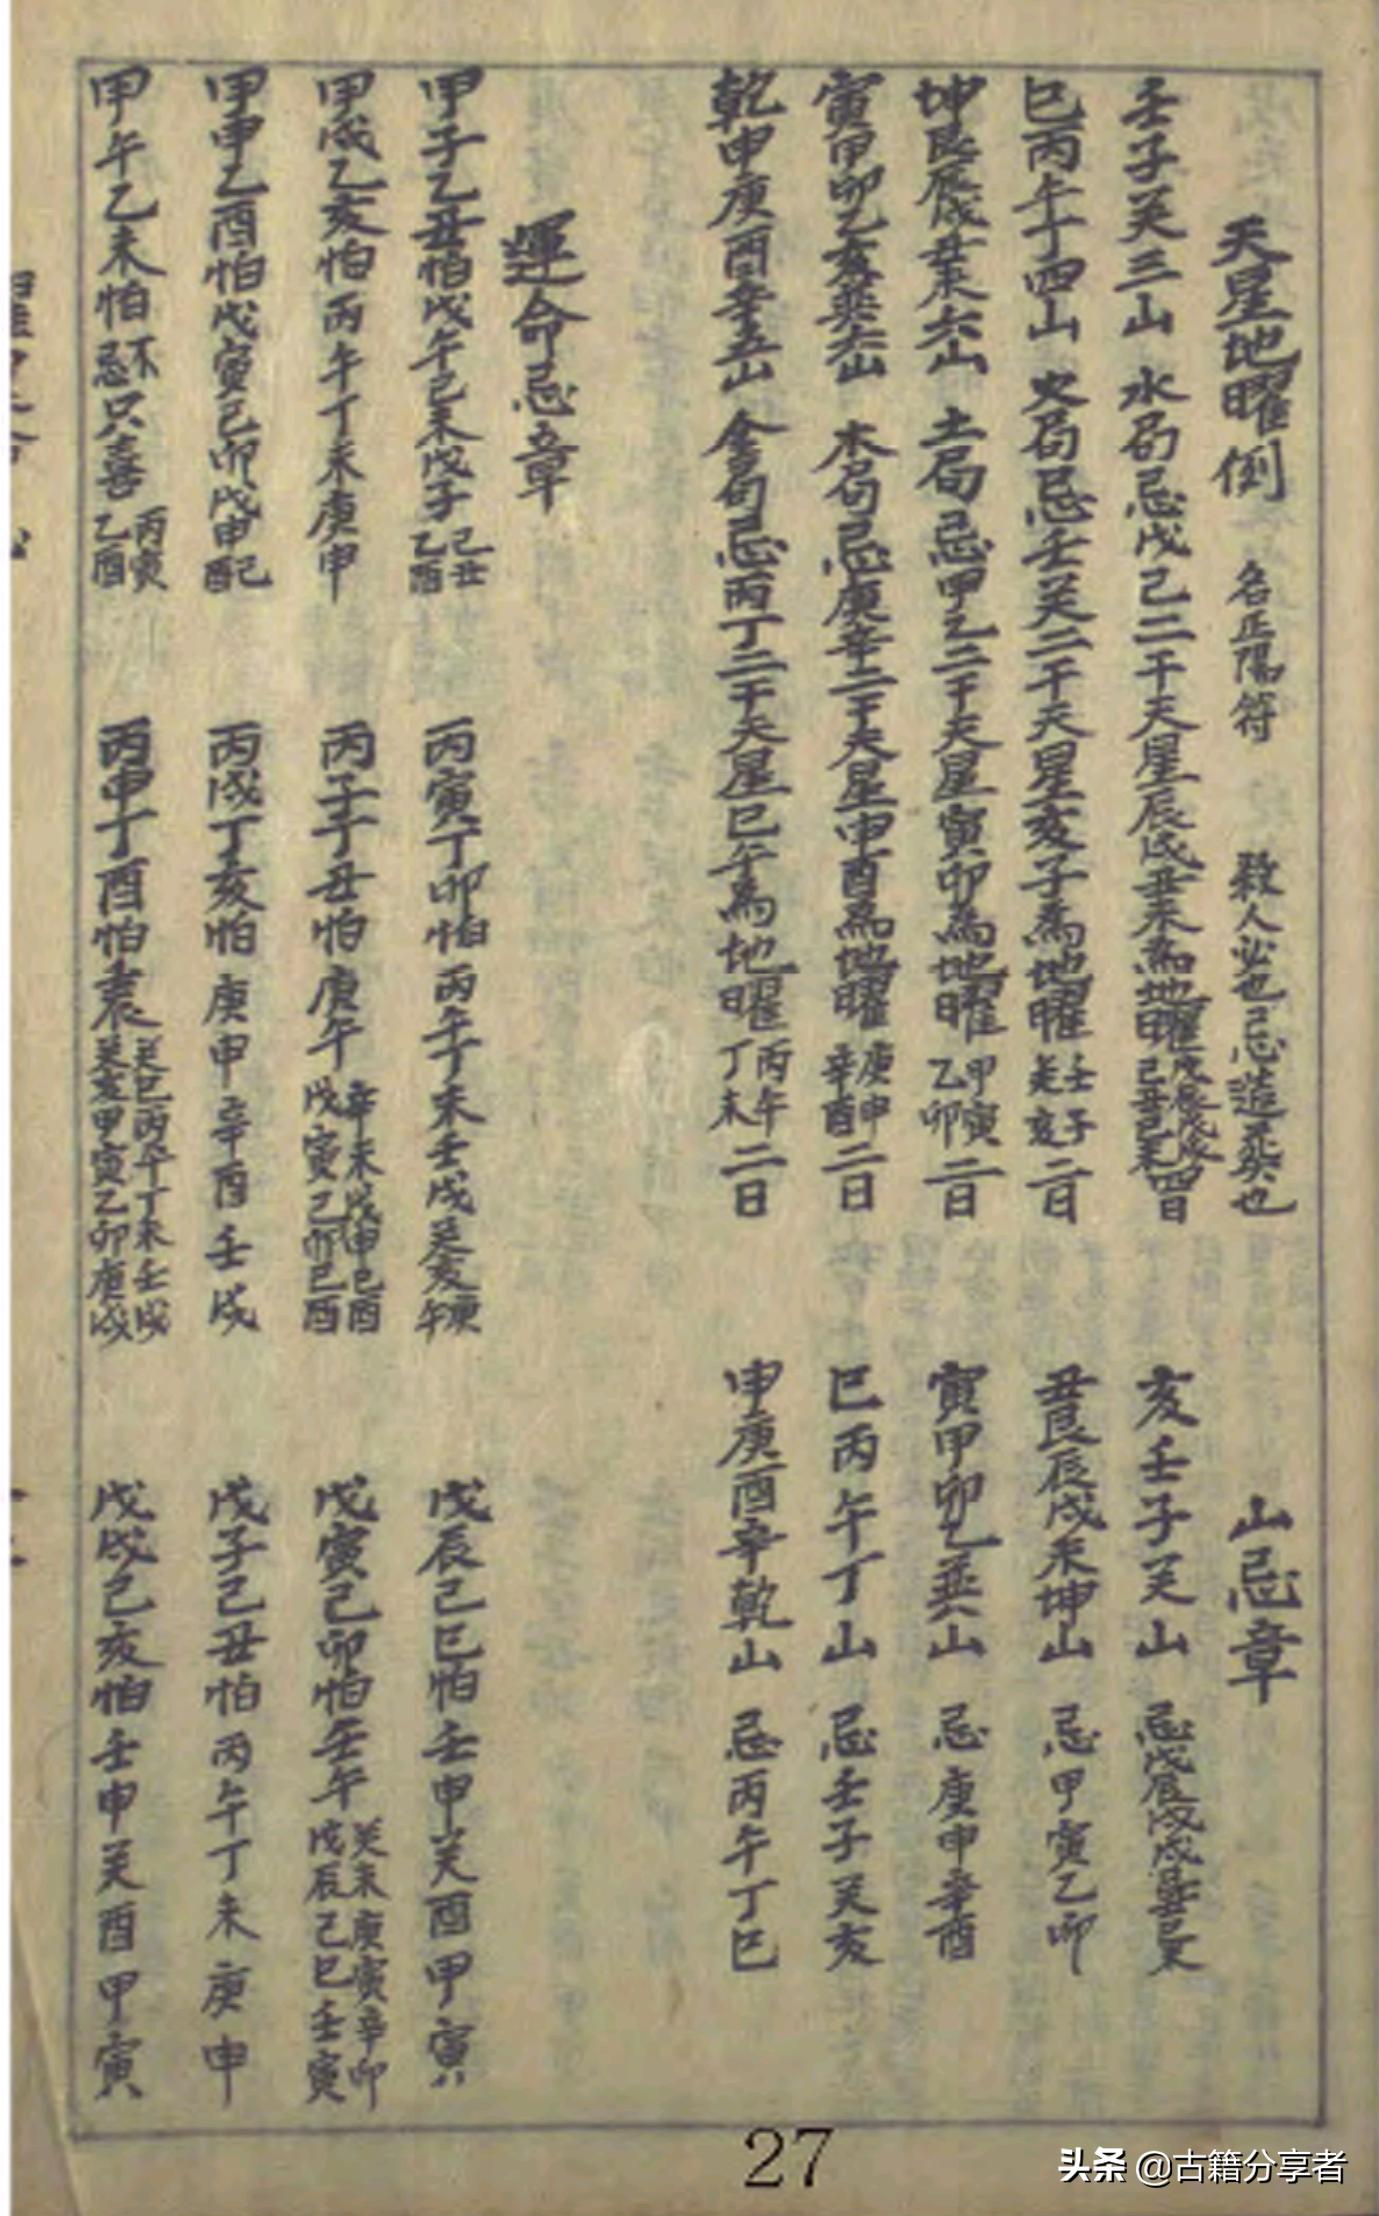 天星地曜倒 名正陽符 殺人必也忌造葬也
壬子癸三山 水局忌戊己二干天星辰戌丑未為地曜戊辰戊戌己丑己未四日
巳丙午丁四山 火局忌壬癸二干天星亥子為地曜壬子癸亥二日
坤艮辰戌丑未六山 土局忌甲乙二干天星寅卯為地曜甲寅乙卯二日
寅甲卯乙亥巽六山 木局忌庚辛二干天星申酉為地曜庚申辛酉二日
乾申庚酉辛五山 金局忌丙丁二干天星巳午為地曜丙午丁未二日
山忌章
亥壬子癸山 忌戊辰戊戌己丑己未
丑艮辰戌未坤山 忌甲寅乙卯
寅甲卯乙巽山 忌庚申辛酉
巳丙午丁山 忌壬子癸亥
申庚酉辛乾山 忌丙午丁巳
運命忌章
甲子乙丑怕戊午己未戊子己丑乙酉
丙寅丁卯怕丙午丁未壬戌癸亥庚午
戊辰己巳怕壬申癸酉甲寅
甲戌乙亥怕丙午丁未庚申
丙子丁丑怕庚午辛未戊申己酉戊寅己卯己酉
戊寅己卯怕壬午癸未庚寅辛卯戊辰己巳壬寅
甲申乙酉怕戊寅己卯戊申己酉
丙戌丁亥怕庚申辛酉壬戌
戊子己丑怕丙午丁未庚申
甲午乙未怕不忌只喜丙寅乙酉
丙申丁酉怕壬辰癸巳丙午丁未壬戌癸亥甲寅乙卯庚戌
戊戌己亥怕壬申癸酉甲寅
27
头条 @古籍分享者